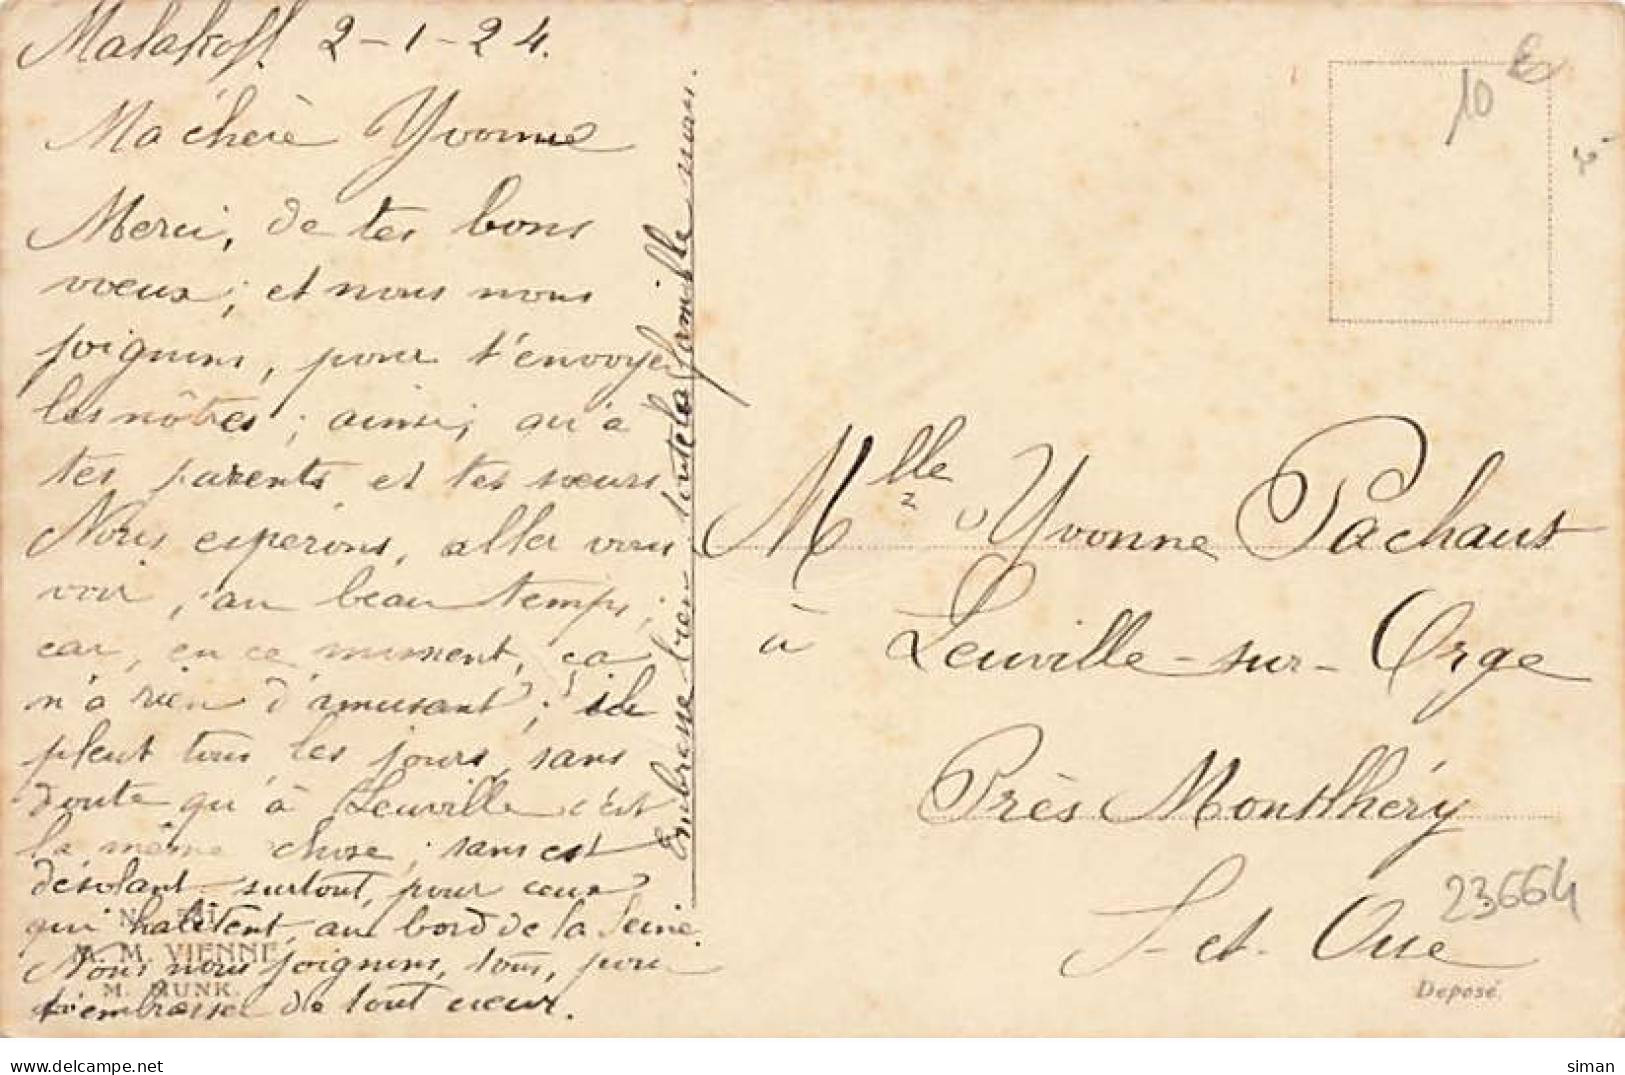 Malakoff 2-1-24.
Ma chère Yvonne
Merci, de tes bons
voeux; et nous nous
joignons, pour t'envoyer
les nôtres; ainsi, qu'à
tes parents et tes soeurs
Nous espérons, aller vous
voir, au beau temps;
car, en ce moment, ça
n'a rien d'amusant; il
pleut tous les jours, sans
doute qu'à Leuville c'est
la même chose; sans est
désolant surtout, pour ceux
qui habitent, au bord de la Seine.
Nous nous joignons, tous, pour
t'embrasser de tout coeur.
Embrasse bien toute la famille
M. M. VIENNE
M. MUNK.
10 €
Mlle Yvonne Pachaut
à Leuville-sur-Orge
Près Montlhéry
S-et-Oise
23664
Deposé
siman